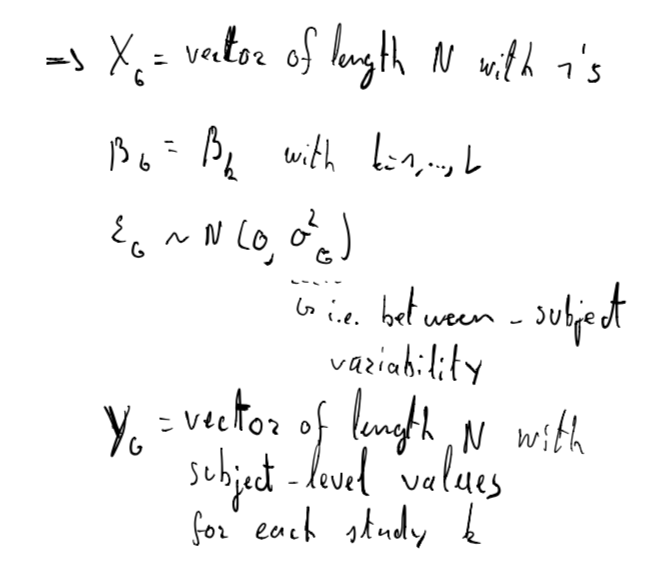 ⇒ X_G = vector of length N with 1's
β_G = β_k with k=1,...,L
ε_G ~ N(0, σ²_G)
↳ i.e. between-subject
variability
Y_G = vector of length N with
subject-level values
for each study k